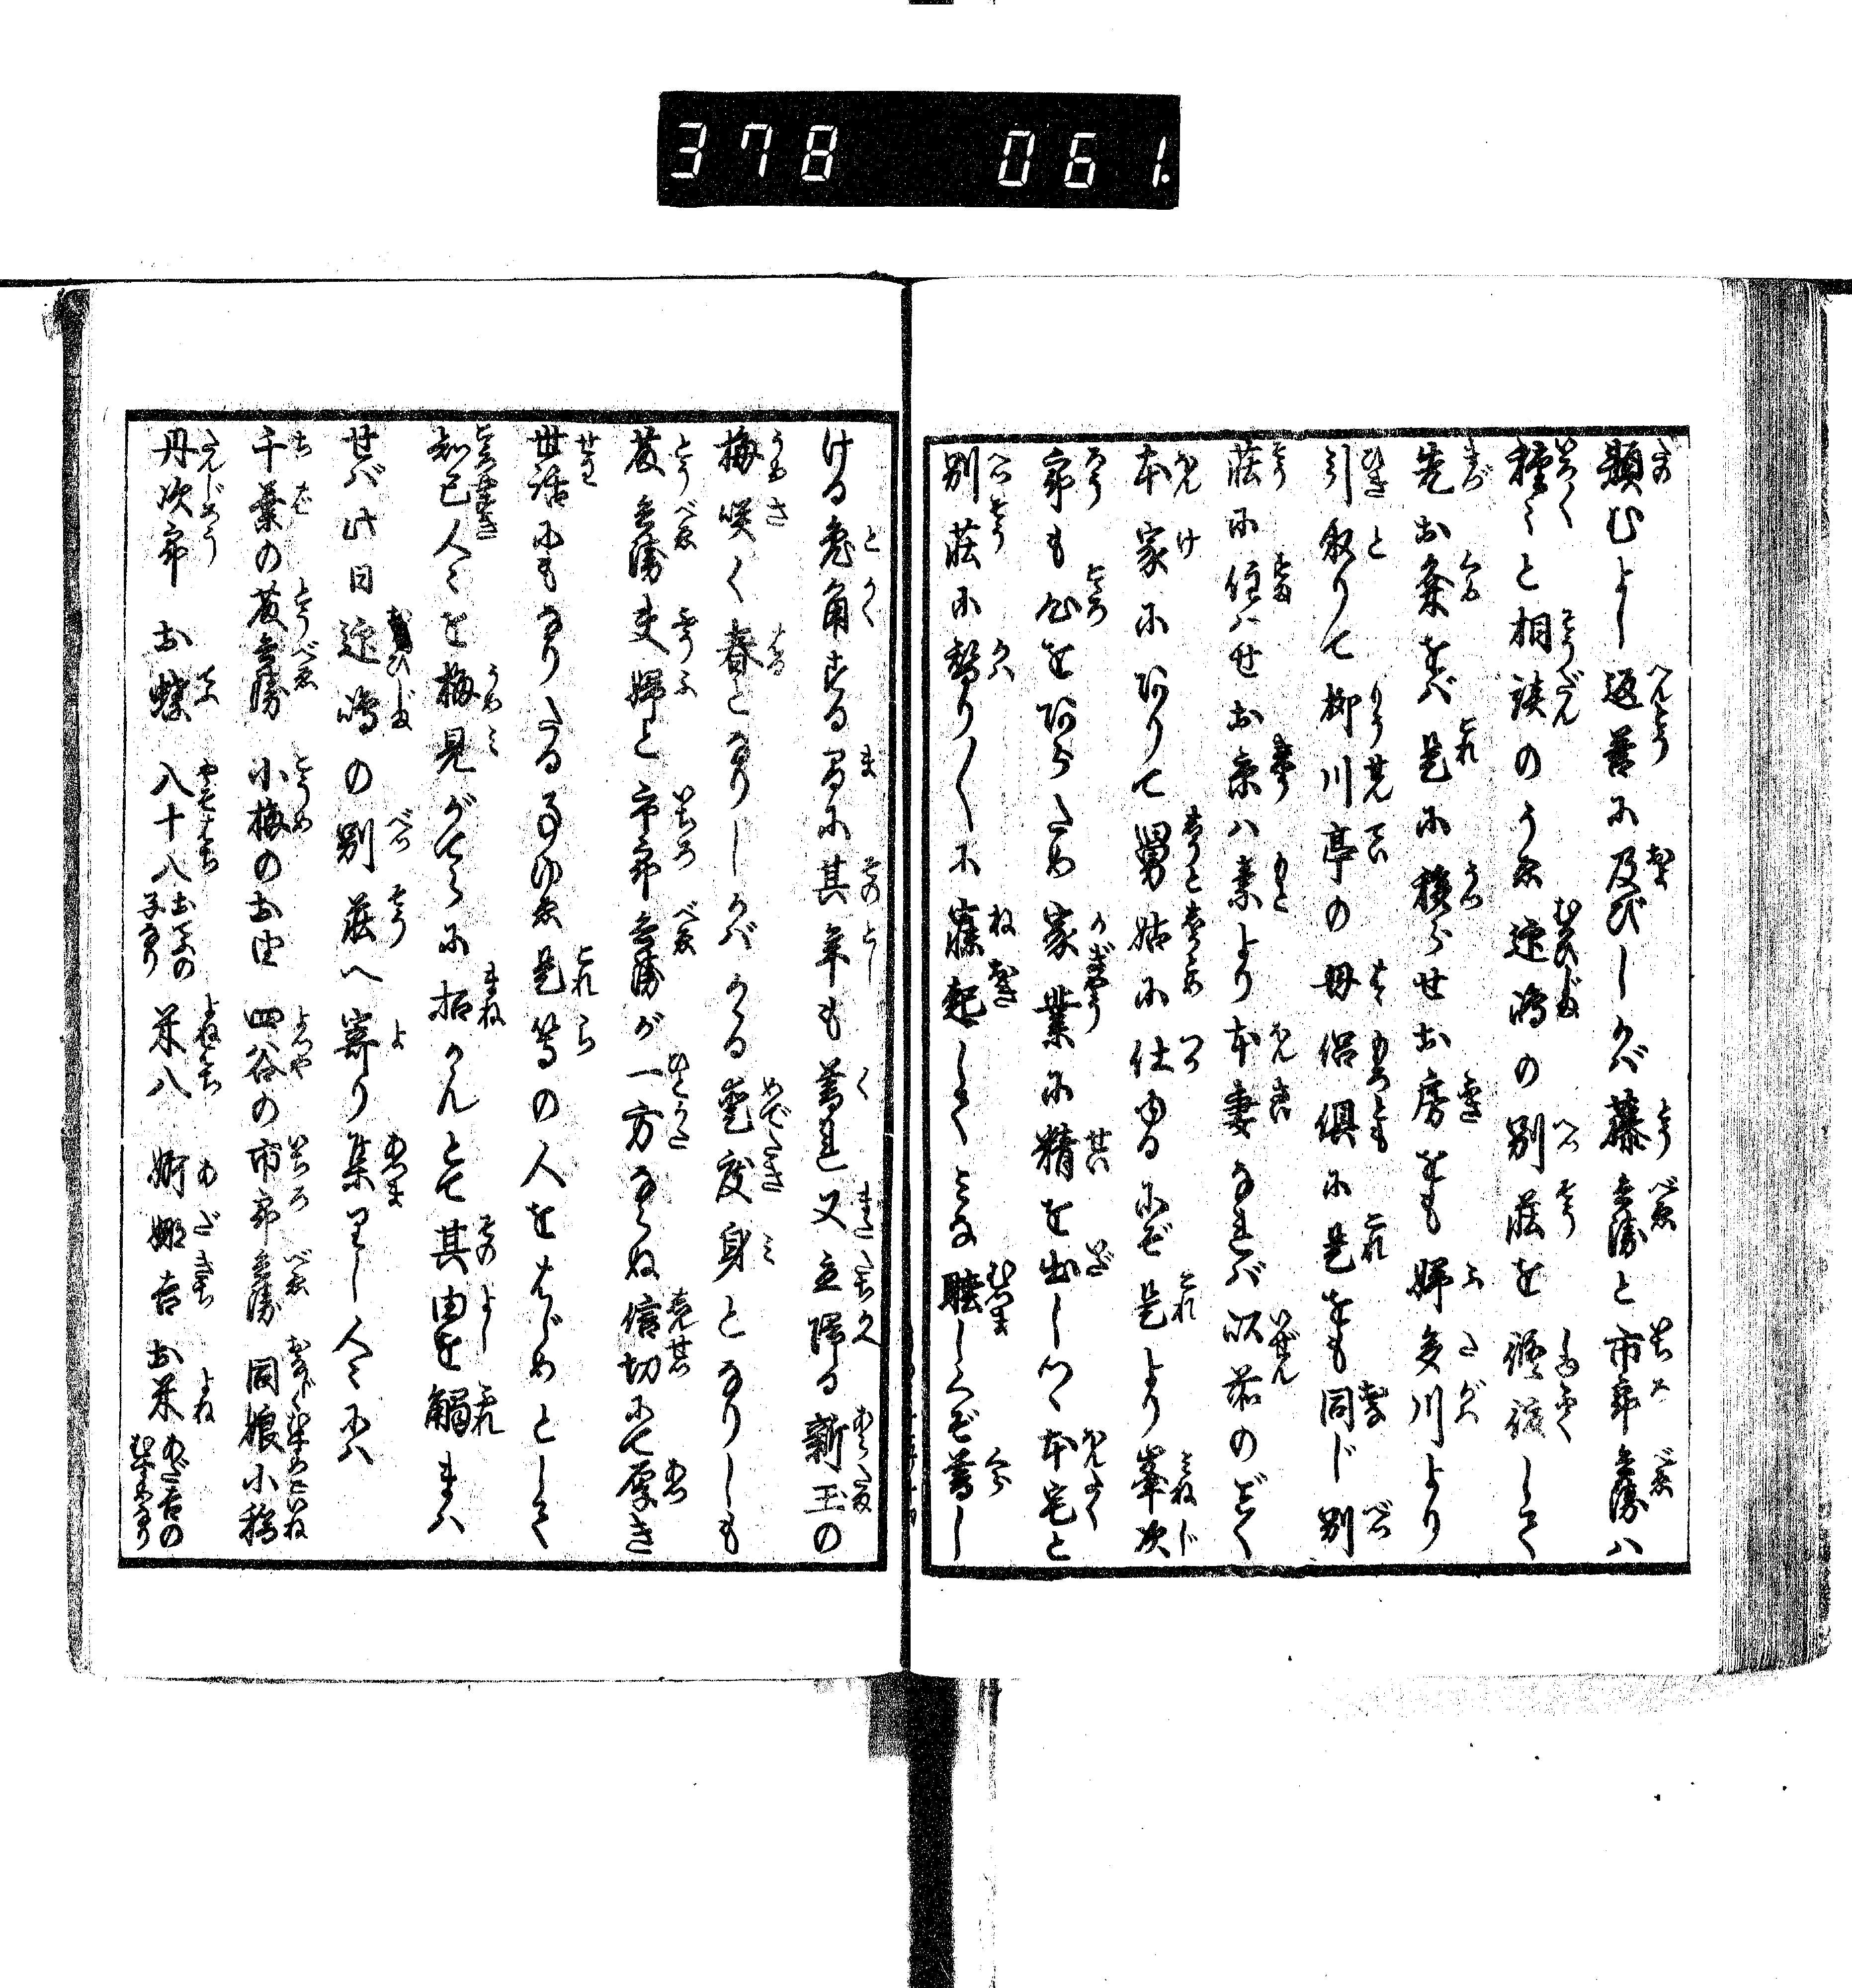 378 061.
頼むよし返答に及びしかバ藤兵衛と市郎兵衛ハ
種々と相談のうゑ迎嶋の別荘を修復して
先お粂をバ是に移らせお房をも婦多川より
引取りて柳川亭の母侶倶に是をも同じ別
荘に住ハせお条ハ素より本妻なれバ以前のごとく
本家に在りて舅姑に仕ゆるにぞ是より峯次
郎も心をあらため家業に精を出しつゝ本宅と
別荘に替り〳〵に寐起しておとなく睦しくぞ暮し
ける兎角する間に其年も暮れ又立帰る新玉の
梅咲く春となりしかバかゝる愛度身となりしも
藤兵衛夫婦と市郎兵衛が一方ならぬ信切にて厚き
世話にもなりたる事ゆゑ是等の人をはじめとして
知己人々を梅見がてらに招かんとて其由を觸まハ
せバ此日迎嶋の別荘へ寄り集りし人々にハ
千葉の藤兵衛 小梅のお由 四谷の市郎兵衛 同娘小稲
丹次郎 お蝶 八十八お蝶の子なり 米八 婀娜吉 お米あだ吉のむすめなり